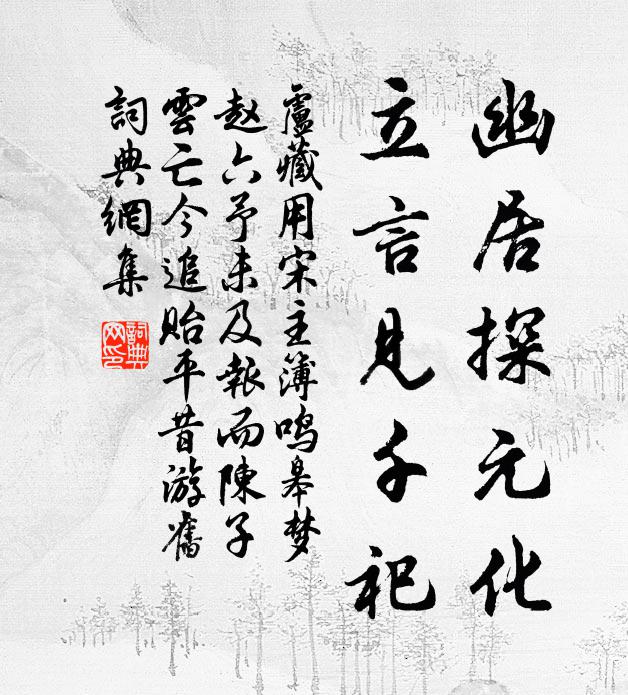 幽居探元化
立言見千祀
盧藏用宋主簿鳴皋梦
赵六予未及報而陳子
雲亡今追貽平昔游舊
詞典網集
詞典網印